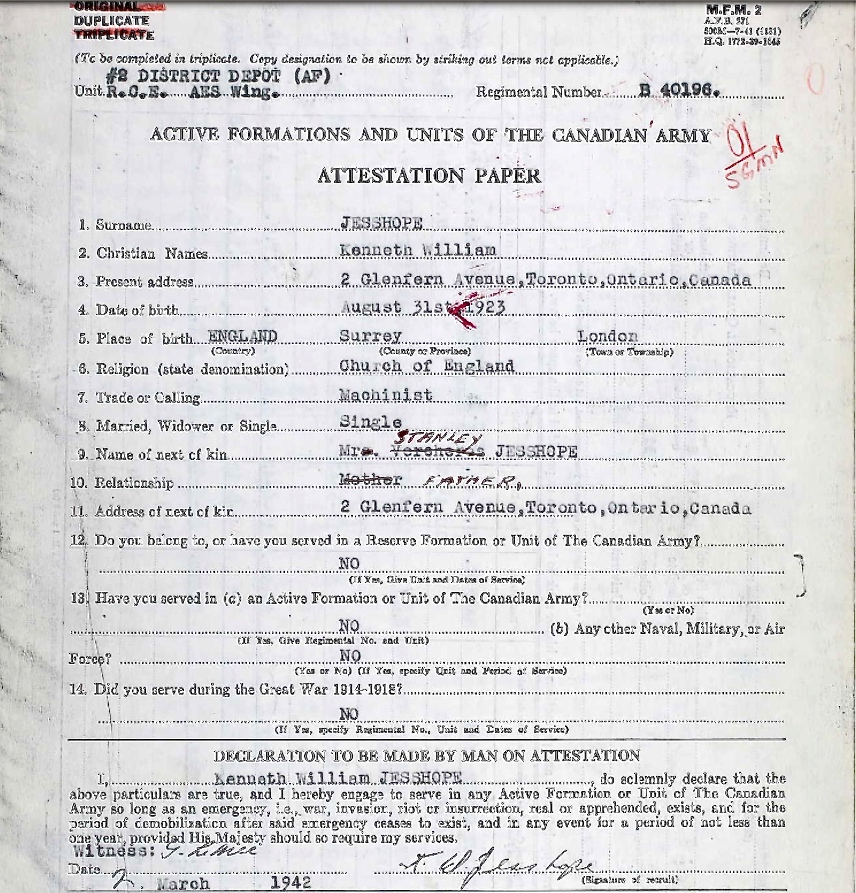 ORIGINAL
DUPLICATE
TRIPLICATE
M.F.M. 2
(To be completed in triplicate. Copy designation to be shown by striking out terms not applicable.)
#2 DISTRICT DEPOT (AF)
Unit R.C.E. AES Wing. Regimental Number B 40196.
ACTIVE FORMATIONS AND UNITS OF THE CANADIAN ARMY
01
SGMN
ATTESTATION PAPER
1. Surname JESSHOPE
2. Christian Names Kenneth William
3. Present address 2 Glenfern Avenue,Toronto,Ontario,Canada
4. Date of birth August 31st 1923
5. Place of birth ENGLAND Surrey London
(Country) (County or Province) (Town or Township)
6. Religion (state denomination) Church of England
7. Trade or Calling Machinist
8. Married, Widower or Single Single
STANLEY
9. Name of next of kin Mrs. JESSHOPE
10. Relationship Mother FATHER.
11. Address of next of kin 2 Glenfern Avenue,Toronto,Ontario,Canada
12. Do you belong to, or have you served in a Reserve Formation or Unit of The Canadian Army?
NO
(If Yes, Give Unit and Dates of Service)
13. Have you served in (a) an Active Formation or Unit of The Canadian Army?
(Yes or No)
NO (b) Any other Naval, Military, or Air
(If Yes, Give Regimental No. and Unit)
Force? NO
(Yes or No) (If Yes, specify Unit and Period of Service)
14. Did you serve during the Great War 1914-1918?
NO
(If Yes, specify Regimental No., Unit and Dates of Service)
DECLARATION TO BE MADE BY MAN ON ATTESTATION
I, Kenneth William JESSHOPE, do solemnly declare that the
above particulars are true, and I hereby engage to serve in any Active Formation or Unit of The Canadian
Army so long as an emergency, i.e., war, invasion, riot or insurrection, real or apprehended, exists, and for the
period of demobilization after said emergency ceases to exist, and in any event for a period of not less than
one year, provided His Majesty should so require my services.
Witness:
K W Jesshope
Date (Signature of recruit)
2. March 1942